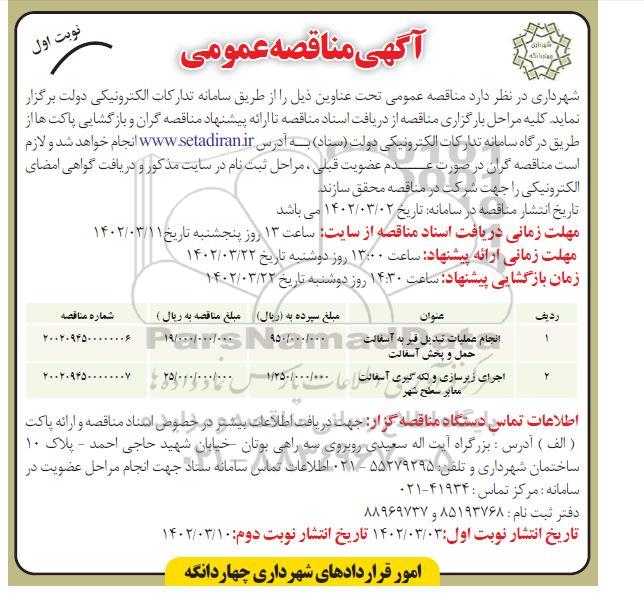 آگهی مناقصه عمومی
نوبت اول
شهرداری چهاردانگه
شهرداری در نظر دارد مناقصه عمومی تحت عناوین ذیل را از طریق سامانه تدارکات الکترونیکی دولت برگزار
نماید. کلیه مراحل بارگزاری مناقصه از دریافت اسناد مناقصه تا ارائه پیشنهاد مناقصه گران و بازگشایی پاکت ها از
طریق درگاه سامانه تدارکات الکترونیکی دولت (ستاد) به آدرس www.setadiran.ir انجام خواهد شد و لازم
است مناقصه گران در صورت عدم عضویت قبلی ، مراحل ثبت نام در سایت مذکور و دریافت گواهی امضای
الکترونیکی را جهت شرکت در مناقصه محقق سازند.
تاریخ انتشار مناقصه در سامانه: تاریخ ۱۴۰۲/۰۳/۰۲ می باشد
مهلت زمانی دریافت اسناد مناقصه از سایت: ساعت ۱۳ روز پنجشنبه تاریخ ۱۴۰۲/۰۳/۱۱
مهلت زمانی ارائه پیشنهاد: ساعت ۱۳:۰۰ روز دوشنبه تاریخ ۱۴۰۲/۰۳/۲۲
زمان بازگشایی پیشنهاد: ساعت ۱۴:۳۰ روز دوشنبه تاریخ ۱۴۰۲/۰۳/۲۲
ردیف عنوان مبلغ سپرده به (ریال) مبلغ مناقصه به ریال ) شماره مناقصه
۱ انجام عملیات تبدیل قیر به آسفالت ۹۵۰/۰۰۰/۰۰۰ ۱۹/۰۰۰/۰۰۰/۰۰۰ ۲۰۰۲۰۹۴۵۰۰۰۰۰۰۶
حمل و پخش آسفالت
۲ اجرای زیرسازی و لکه گیری آسفالت ۱/۲۵۰/۰۰۰/۰۰۰ ۲۵/۰۰۰/۰۰۰/۰۰۰ ۲۰۰۲۰۹۴۵۰۰۰۰۰۰۷
معابر سطح شهر
اطلاعات تماس دستگاه مناقصه گزار: جهت دریافت اطلاعات بیشتر در خصوص اسناد مناقصه و ارائه پاکت
( الف ) آدرس : بزرگراه آیت اله سعیدی روبروی سه راهی بوتان -خیابان شهید حاجی احمد - پلاک ۱۰
ساختمان شهرداری و تلفن: ۵۵۲۷۹۲۹۵ - ۰۲۱ اطلاعات تماس سامانه ستاد جهت انجام مراحل عضویت در
سامانه : مرکز تماس : ۴۱۹۳۴-۰۲۱
دفتر ثبت نام : ۸۵۱۹۳۷۶۸ و ۸۸۹۶۹۷۳۷
تاریخ انتشار نوبت اول: ۱۴۰۲/۰۳/۰۳ تاریخ انتشار نوبت دوم: ۱۴۰۲/۰۳/۱۰
امور قراردادهای شهرداری چهاردانگه
ParsNamadData